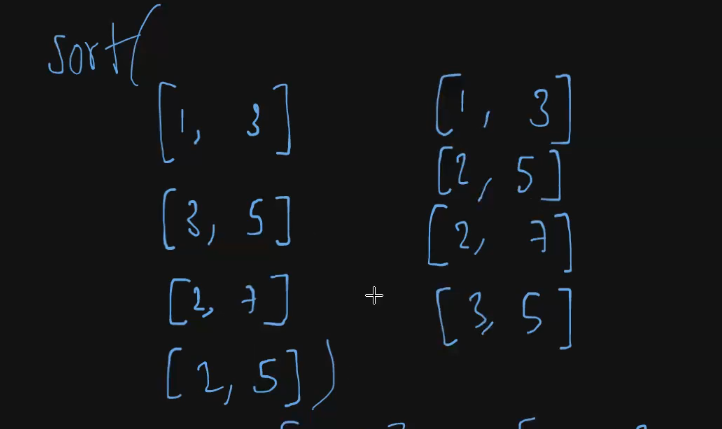 sort(
[1, 3]
[3, 5]
[2, 7]
[2, 5])
[1, 3]
[2, 5]
[2, 7]
[3, 5]